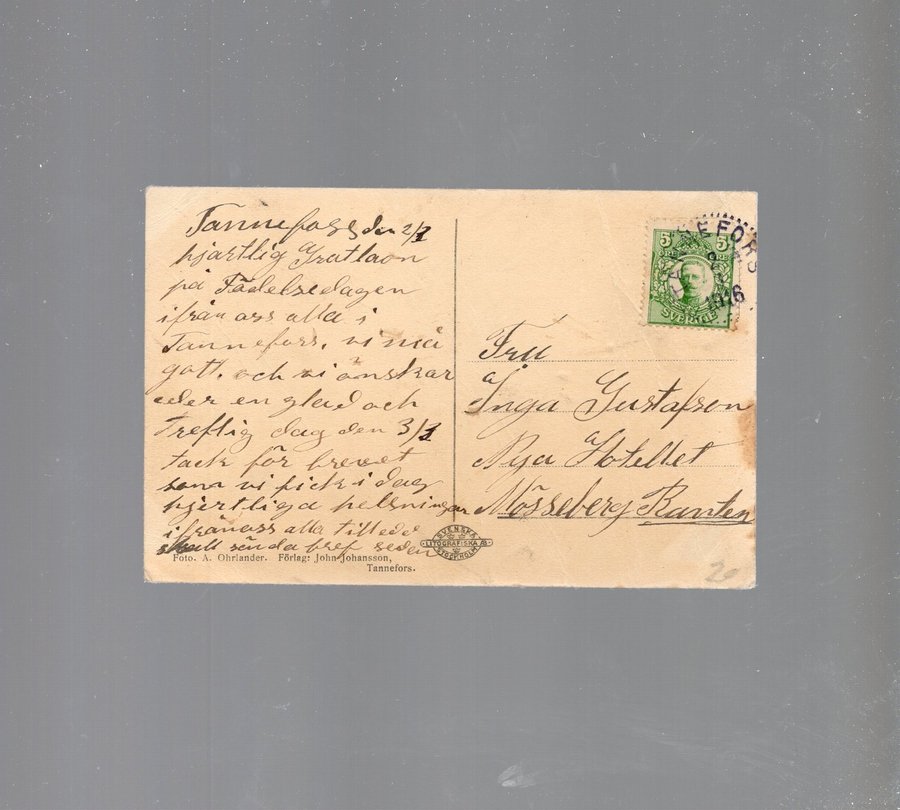 Tannefors den 2/1
hjärtlig Gratlaon
på Födelsedagen
ifrån oss alla i
Tannefors, vi må
gott. och vi önskar
eder en glad och
treflig dag den 3/1
tack för brevet
som vi fick i dag
hjertliga helsningar
ifrån oss alla till eder
skall sända bref seden
Foto. A. Ohrlander. Förlag: John Johansson,
Tannefors.
SVENSKA
LITOGRAFISKA AB
STOCKHOLM
5 5
ÖRE ÖRE
SVERIGE
TANNEFORS
1916
Fru
Inga Gustafson
Nya Hotellet
Mösseberg Ranten
20